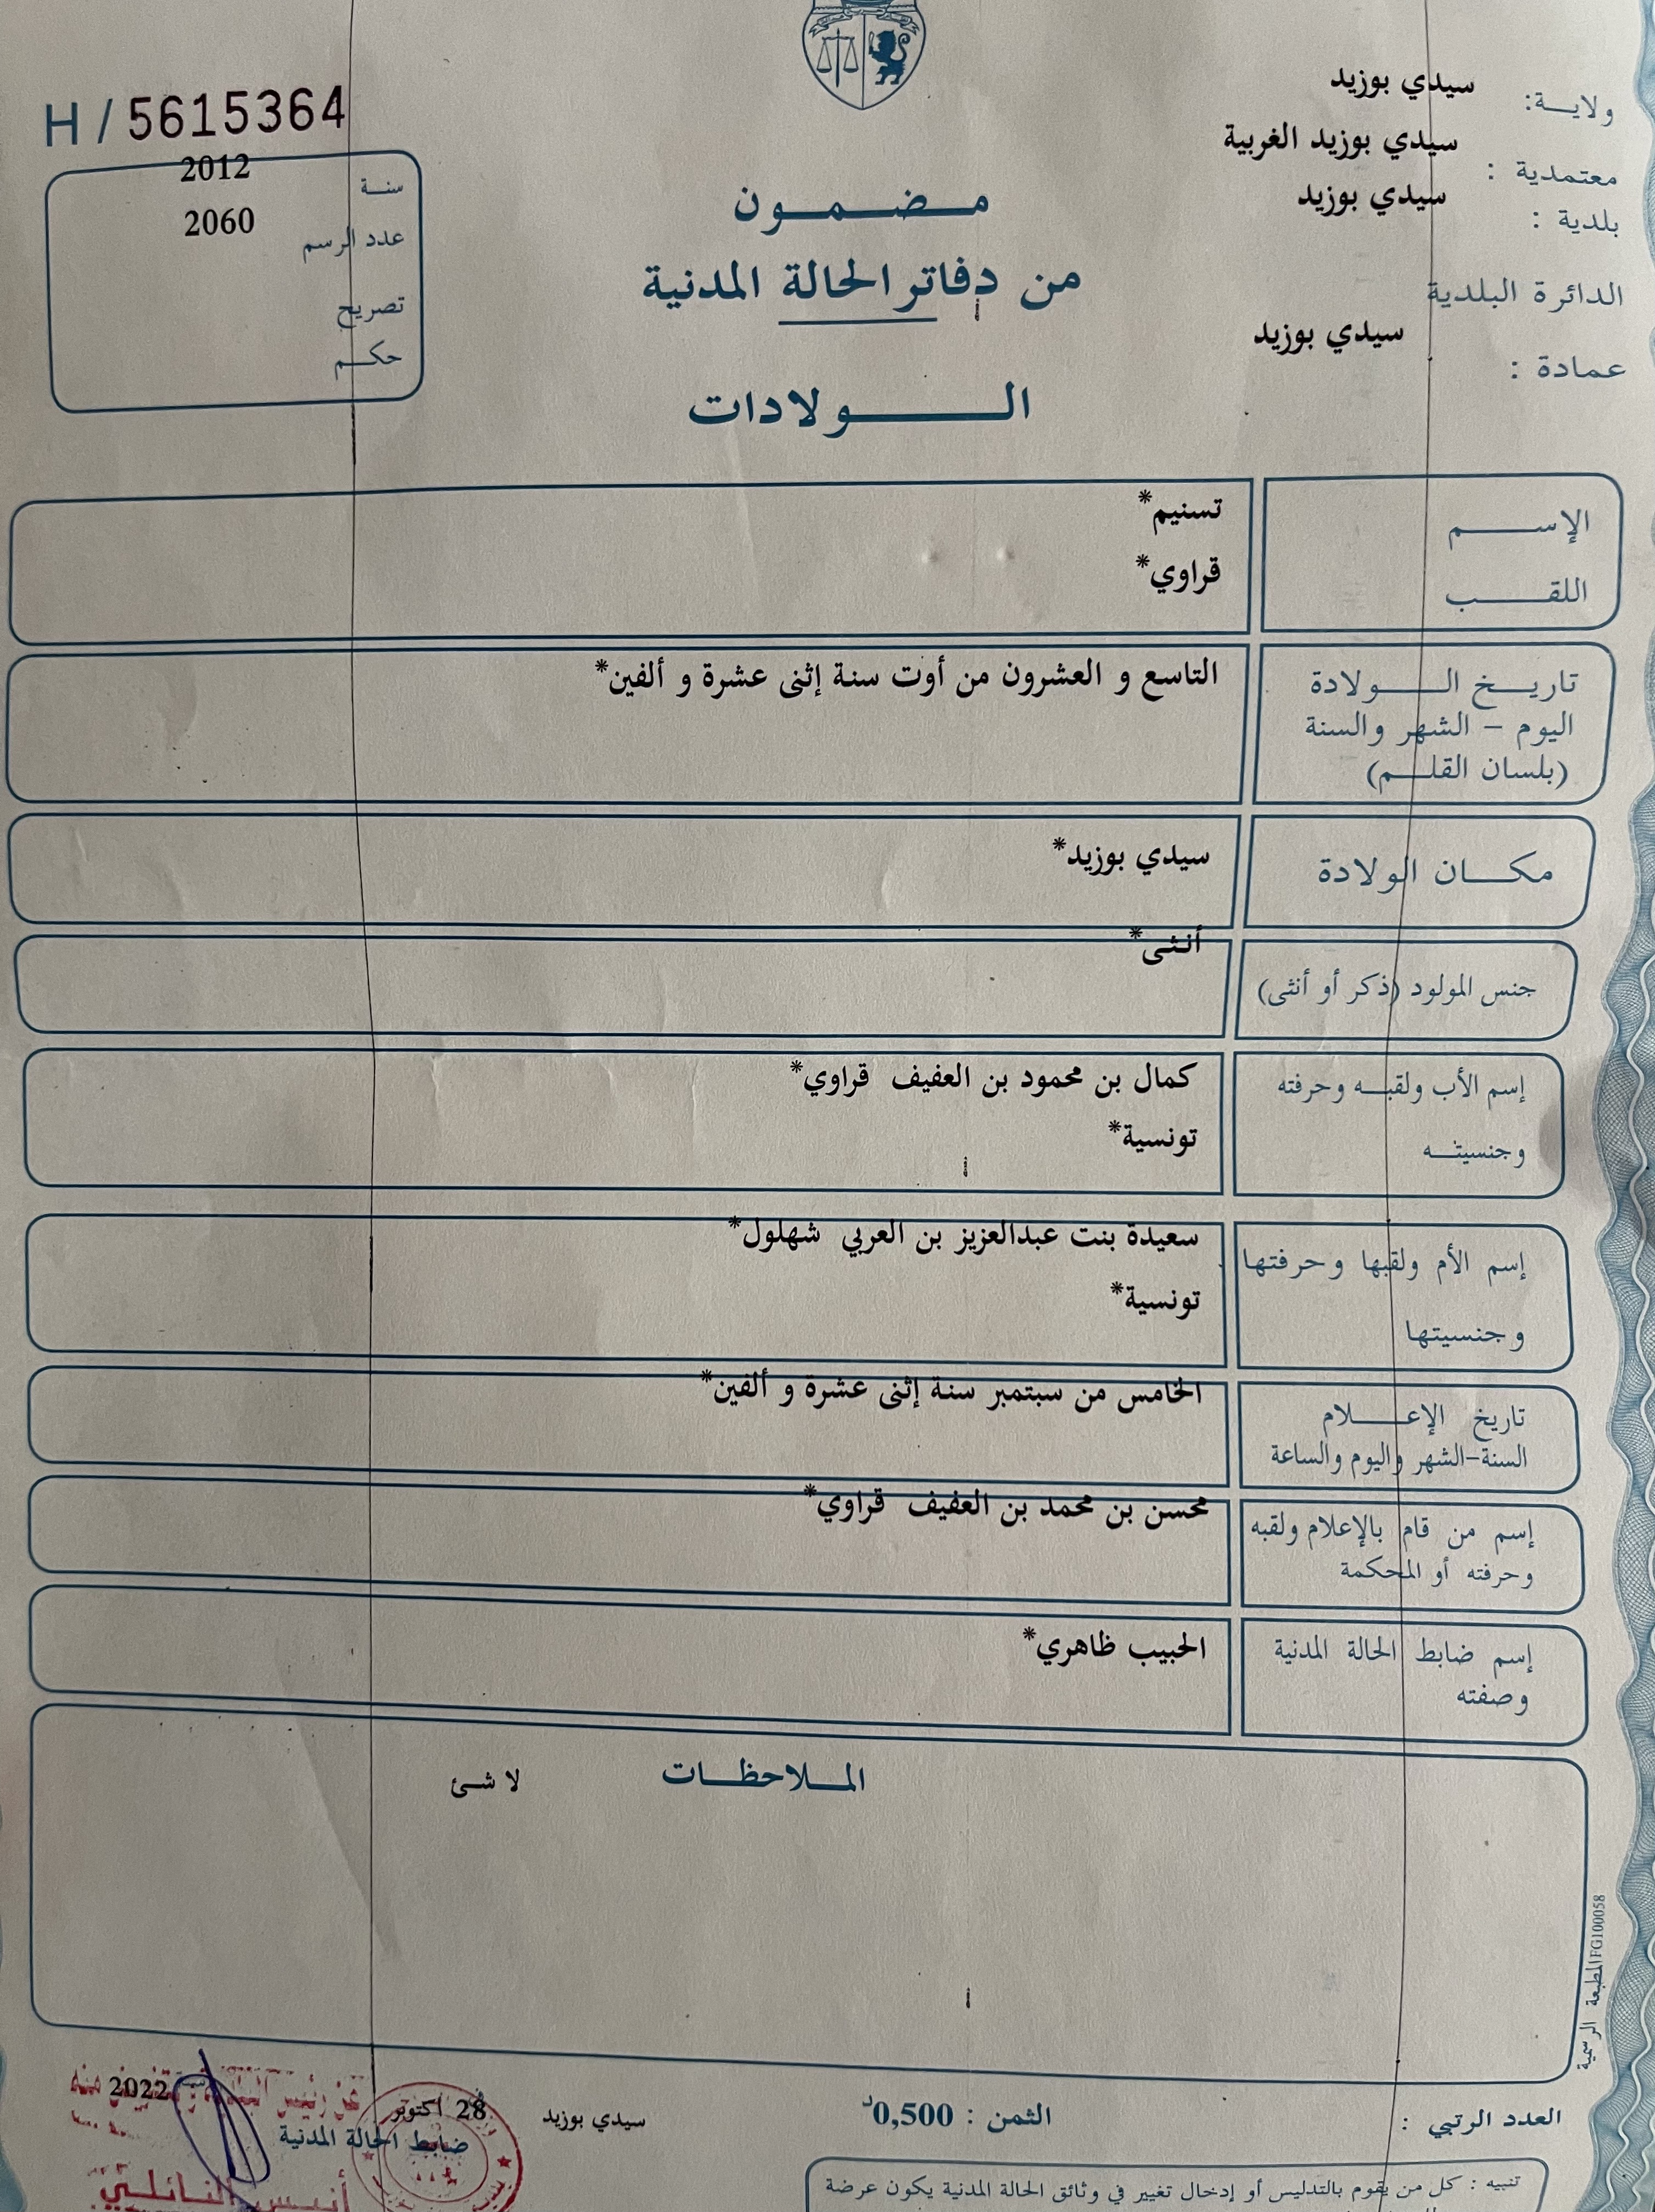 ولاية: سيدي بوزيد
معتمدية : سيدي بوزيد الغربية
بلدية : سيدي بوزيد
الدائرة البلدية
عمادة : سيدي بوزيد
H / 5615364
سنة 2012
عدد الرسم 2060
تصريح
حكم
مضمون
من دفاتر الحالة المدنية
الولادات
الإسم تسنيم*
اللقب قراوي*
تاريخ الولادة التاسع و العشرون من أوت سنة إثنى عشرة و ألفين*
اليوم - الشهر والسنة
(بلسان القلم)
مكان الولادة سيدي بوزيد*
جنس المولود (ذكر أو أنثى) أنثى*
إسم الأب ولقبه وحرفته كمال بن محمود بن العفيف قراوي*
وجنسيته تونسية*
إسم الأم ولقبها وحرفتها سعيدة بنت عبدالعزيز بن العربي شهلول*
وجنسيتها تونسية*
تاريخ الإعلام الخامس من سبتمبر سنة إثنى عشرة و ألفين*
السنة-الشهر واليوم والساعة
إسم من قام بالإعلام ولقبه محسن بن محمد بن العفيف قراوي*
وحرفته أو المحكمة
إسم ضابط الحالة المدنية الحبيب ظاهري*
وصفته
الملاحظات لا شئ
المطبعة الرسمية FG100058
العدد الرتبي : الثمن : 0,500د
سيدي بوزيد في 28 اكتوبر 2022
عن رئيس البلدية وبتفويض منه
ضابط الحالة المدنية
أنيس النائلي
تنبيه : كل من يقوم بالتدليس أو إدخال تغيير في وثائق الحالة المدنية يكون عرضة